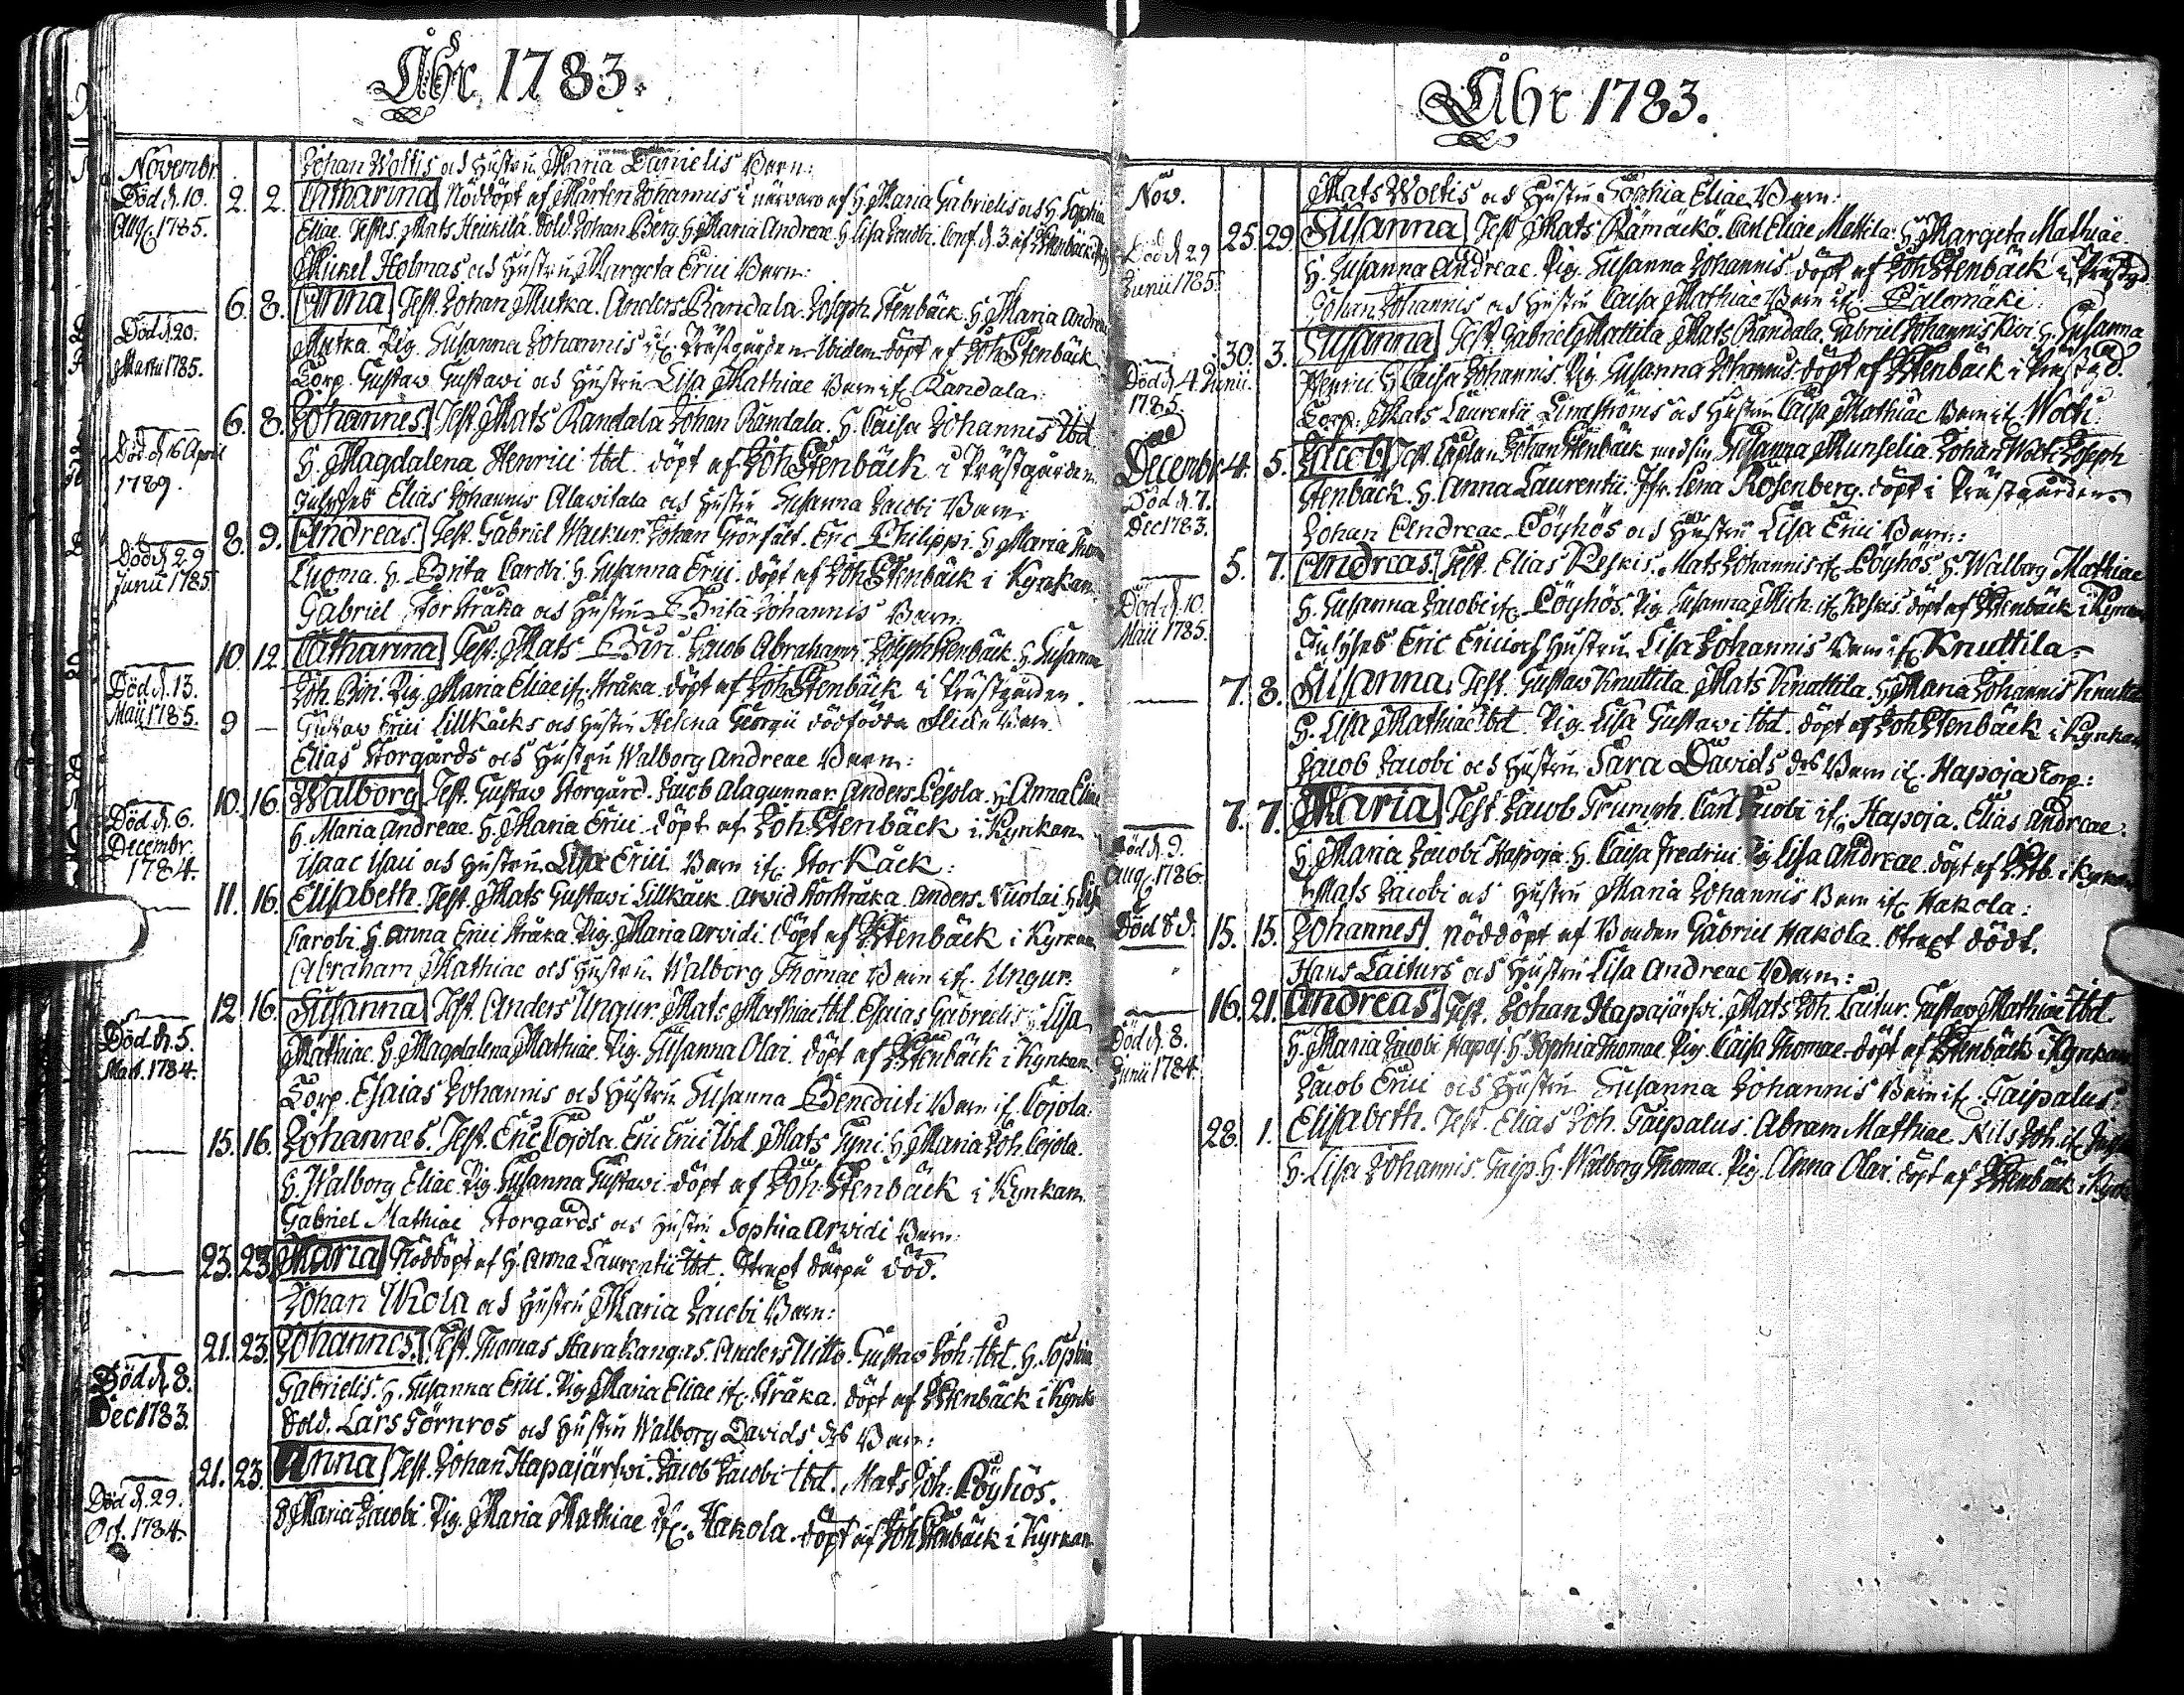 Åhr 1783.
Novembr.
Johan Woltis och Hustru Maria Danielis Barn:
Död d. 10. Aug. 1785.
2. 2. Catharina Nöddöpt af Mårten Johannis i närvaro af H. Maria Gabrielis och H. Sophia
Eliae. Testes. Mats Heikilä. Sold. Johan Berg. H. Maria Andreae. H. Lisa Jacobi. Conf. d. 3. af Stenbäck
Michel Holmas och Hustru Margeta Erici Barn:
Död d. 20. Martii 1785.
6. 8. Anna Test. Johan Mutka. Anders Randala. Joseph Stenbäck. H. Maria Andreae
Mutka. Pig. Susanna Johannis if. Prästgården Ibidem döpt af Joh. Stenbäck
Corp. Gustaw Gustawi och Hustru Lisa Mathiae Barn if. Randala:
Död d. 16 April 1789.
6. 8. Johannes. Test. Mats Randala Johan Randala. H. Caisa Johannis Ibd.
H. Magdalena Henrici Ibd. döpt af Joh. Stenbäck i Prästgården
Inhyses Elias Johannis Alawitala och Hustru Susanna Jacobi Barn:
Död d. 29 Junii 1785
8. 9. Andreas. Test. Gabriel Wuckur. Johan Grönfält. Eric Philippi. H. Maria
Luoma. H. Brita Caroli. H. Susanna Erici. döpt af Joh. Stenbäck i Kyrkan.
Gabriel Storstråka och Hustru Brita Johannis Barn:
Död d. 13. Maii 1785.
10. 12. Catharina Test. Mats Biri. Jacob Abrahami. Joseph Stenbäck. H. Susanna
Joh. Biri. Pig. Maria Eliae if. Stråka. döpt af Joh. Stenbäck i Prästgården.
9 — Gustaw Erici Lillkåcks och Hustru Helena Georgii dödfödda Flicke Barn.
Elias Storgårds och Hustru Walborg Andreae Barn:
Död d. 6. Decembr. 1784.
10. 16. Walborg Test. Gustaw Storgård. Jacob Alagunnar. Anders Pesola. H. Anna Eliae
H. Maria Andreae. H. Maria Erici. döpt af Joh. Stenbäck i Kyrkan
Isaac Isaci och Hustru Lisa Erici Barn if. Stor Kåck:
11. 16. Elisabeth. Test. Mats Gustawi Lillkåck. Arvid Storstråka. Anders Nicolai. H. Lisa
Caroli. H. Anna Erici Stråka. Pig. Maria Arvidi. Döpt af Stenbäck i Kyrkan
Abraham Mathiae och Hustru Walborg Thomae Barn if. Ungur:
Död d. 5. Mart. 1784.
12 16. Susanna Test. Anders Ungur. Mats Mathiae Ibd. Esaias Gabrielis. H. Lisa
Mathiae. H. Magdalena Mathiae. Pig. Susanna Olai. döpt af Stenbäck i Kyrkan.
Corp. Esaias Johannis och Hustru Susanna Benedicti Barn if. Cojola:
15. 16. Johannes. Test. Eric Cojola. Eric Erici Ibd. Mats Tyni. H. Maria Joh. Cojola.
H. Walborg Eliae. Pig. Susanna Gustawi. döpt af Joh. Stenbäck i Kyrkan
Gabriel Mathiae Storgårds och Hustru Sophia Arvidi Barn:
23. 23. Maria Nöddöpt af H. Anna Laurentii Ibd. Straxt därpå död.
Johan Wiola och Hustru Maria Jacobi Barn:
Död d. 8. Dec 1783.
21. 23. Johannes. Test. Thomas Harakangas. Anders Uitto. Gustaw Joh. Ibd. H. Sophia
Gabrielis. H. Susanna Erici. Pig. Maria Eliae if. Stråka. döpt af Stenbäck i Kyrk
Sold. Lars Törnros och Hustru Walborg Davids dotr Barn:
Död d. 29. Oct. 1784.
21. 23. Anna Test. Johan Hapajärfwi. Jacob Jacobi Ibd. Mats Joh. Pöyhös.
H. Maria Jacobi. Pig. Maria Mathiae if. Hakola. döpt af Joh. Stenbäck i Kyrkan
Åhr 1783.
Nov.
Mats Woltis och Hustru Sophia Eliae Barn:
Död d. 29 Junii 1785.
25. 29. Susanna Test. Mats Rämäckö. Carl Eliae Mattila. H. Margeta Mathiae.
H. Susanna Andreae. Pig. Susanna Johannis. döpt af Joh. Stenbäck i Prästgd
Johan Johannis och Hustru Caisa Mathiae Barn if. Palomäki:
Död d. 4. Junii. 1785.
30. 3. Susanna Test. Gabriel Mattila. Mats Randala. Gabriel Johannis Kivi. H. Susanna
Henrici H. Caisa Johannis. Pig. Susanna Johannis. döpt af Stenbäck i Prästgd.
Corp. Mats Laurentii Lindströms och Hustru Caisa Mathiae Barn if. Wolti:
Decembr.
Död d. 7. Dec 1783.
4. 5. Jacob Test. Caplan Johan Stenbäck med sin Susanna Munselia. Johan Wolti. Joseph
Stenbäck. H. Anna Laurentii. Jfr. Lena Rosenberg. döpt i Prästgården
Johan Andreae Pöyhös och Hustru Lisa Erici Barn:
Död d. 10. Maii 1785.
5. 7. Andreas. Test. Elias Keskis. Mats Johannis if. Pöyhös. H. Walborg Mathiae
H. Susanna Jacobi if. Pöyhös. Pig. Susanna Mich. if. Keskis. döpt af Stenbäck i Kyrkan
Inhyses Eric Erici och Hustru Lisa Johannis Barn if. Knuttila
7. 8. Susanna: Test. Gustaw Knuttila. Mats Knuttila. H. Maria Johannis Knuttila
H. Lisa Mathiae Ibd. Pig. Lisa Gustawi Ibd. döpt af Joh. Stenbäck i Kyrkan
Jacob Jacobi och Hustru Sara Davids dotr Barn if. Hapoja Torp:
Död d. 9. Aug. 1786.
7. 7. Maria Test. Jacob Triumph. Carl Jacobi if. Hapoja. Elias Andreae.
H. Maria Jacobi Hapoja. H. Caisa Fredrici. Pig. Lisa Andreae. döpt af Stb. i Kyrkan
Mats Jacobi och Hustru Maria Johannis Barn if. Hakola:
Död d.
15. 15. Johannes Nöddöpt af Bonden Gabriel Hakola. Straxt dödt.
Hans Laiturs och Hustru Lisa Andreae Barn:
Död d. 8. Junii 1784.
16. 21. Andreas Test. Johan Hapajärfwi. Mats Joh. Laitur. Gustaw Mathiae Ibd.
H. Maria Jacobi Hapaj. H. Sophia Thomae. Pig. Caisa Thomae. döpt af Stenbäck i Kyrkan
Jacob Erici och Hustru Susanna Johannis Barn if. Taipalus:
28. 1. Elisabeth. Test. Elias Joh. Taipalus. Abram Mathiae. Nils Joh. if.
H. Lisa Johannis. Taip. H. Walborg Thomae. Pig. Anna Olai. döpt af Stenbäck i Kyrk